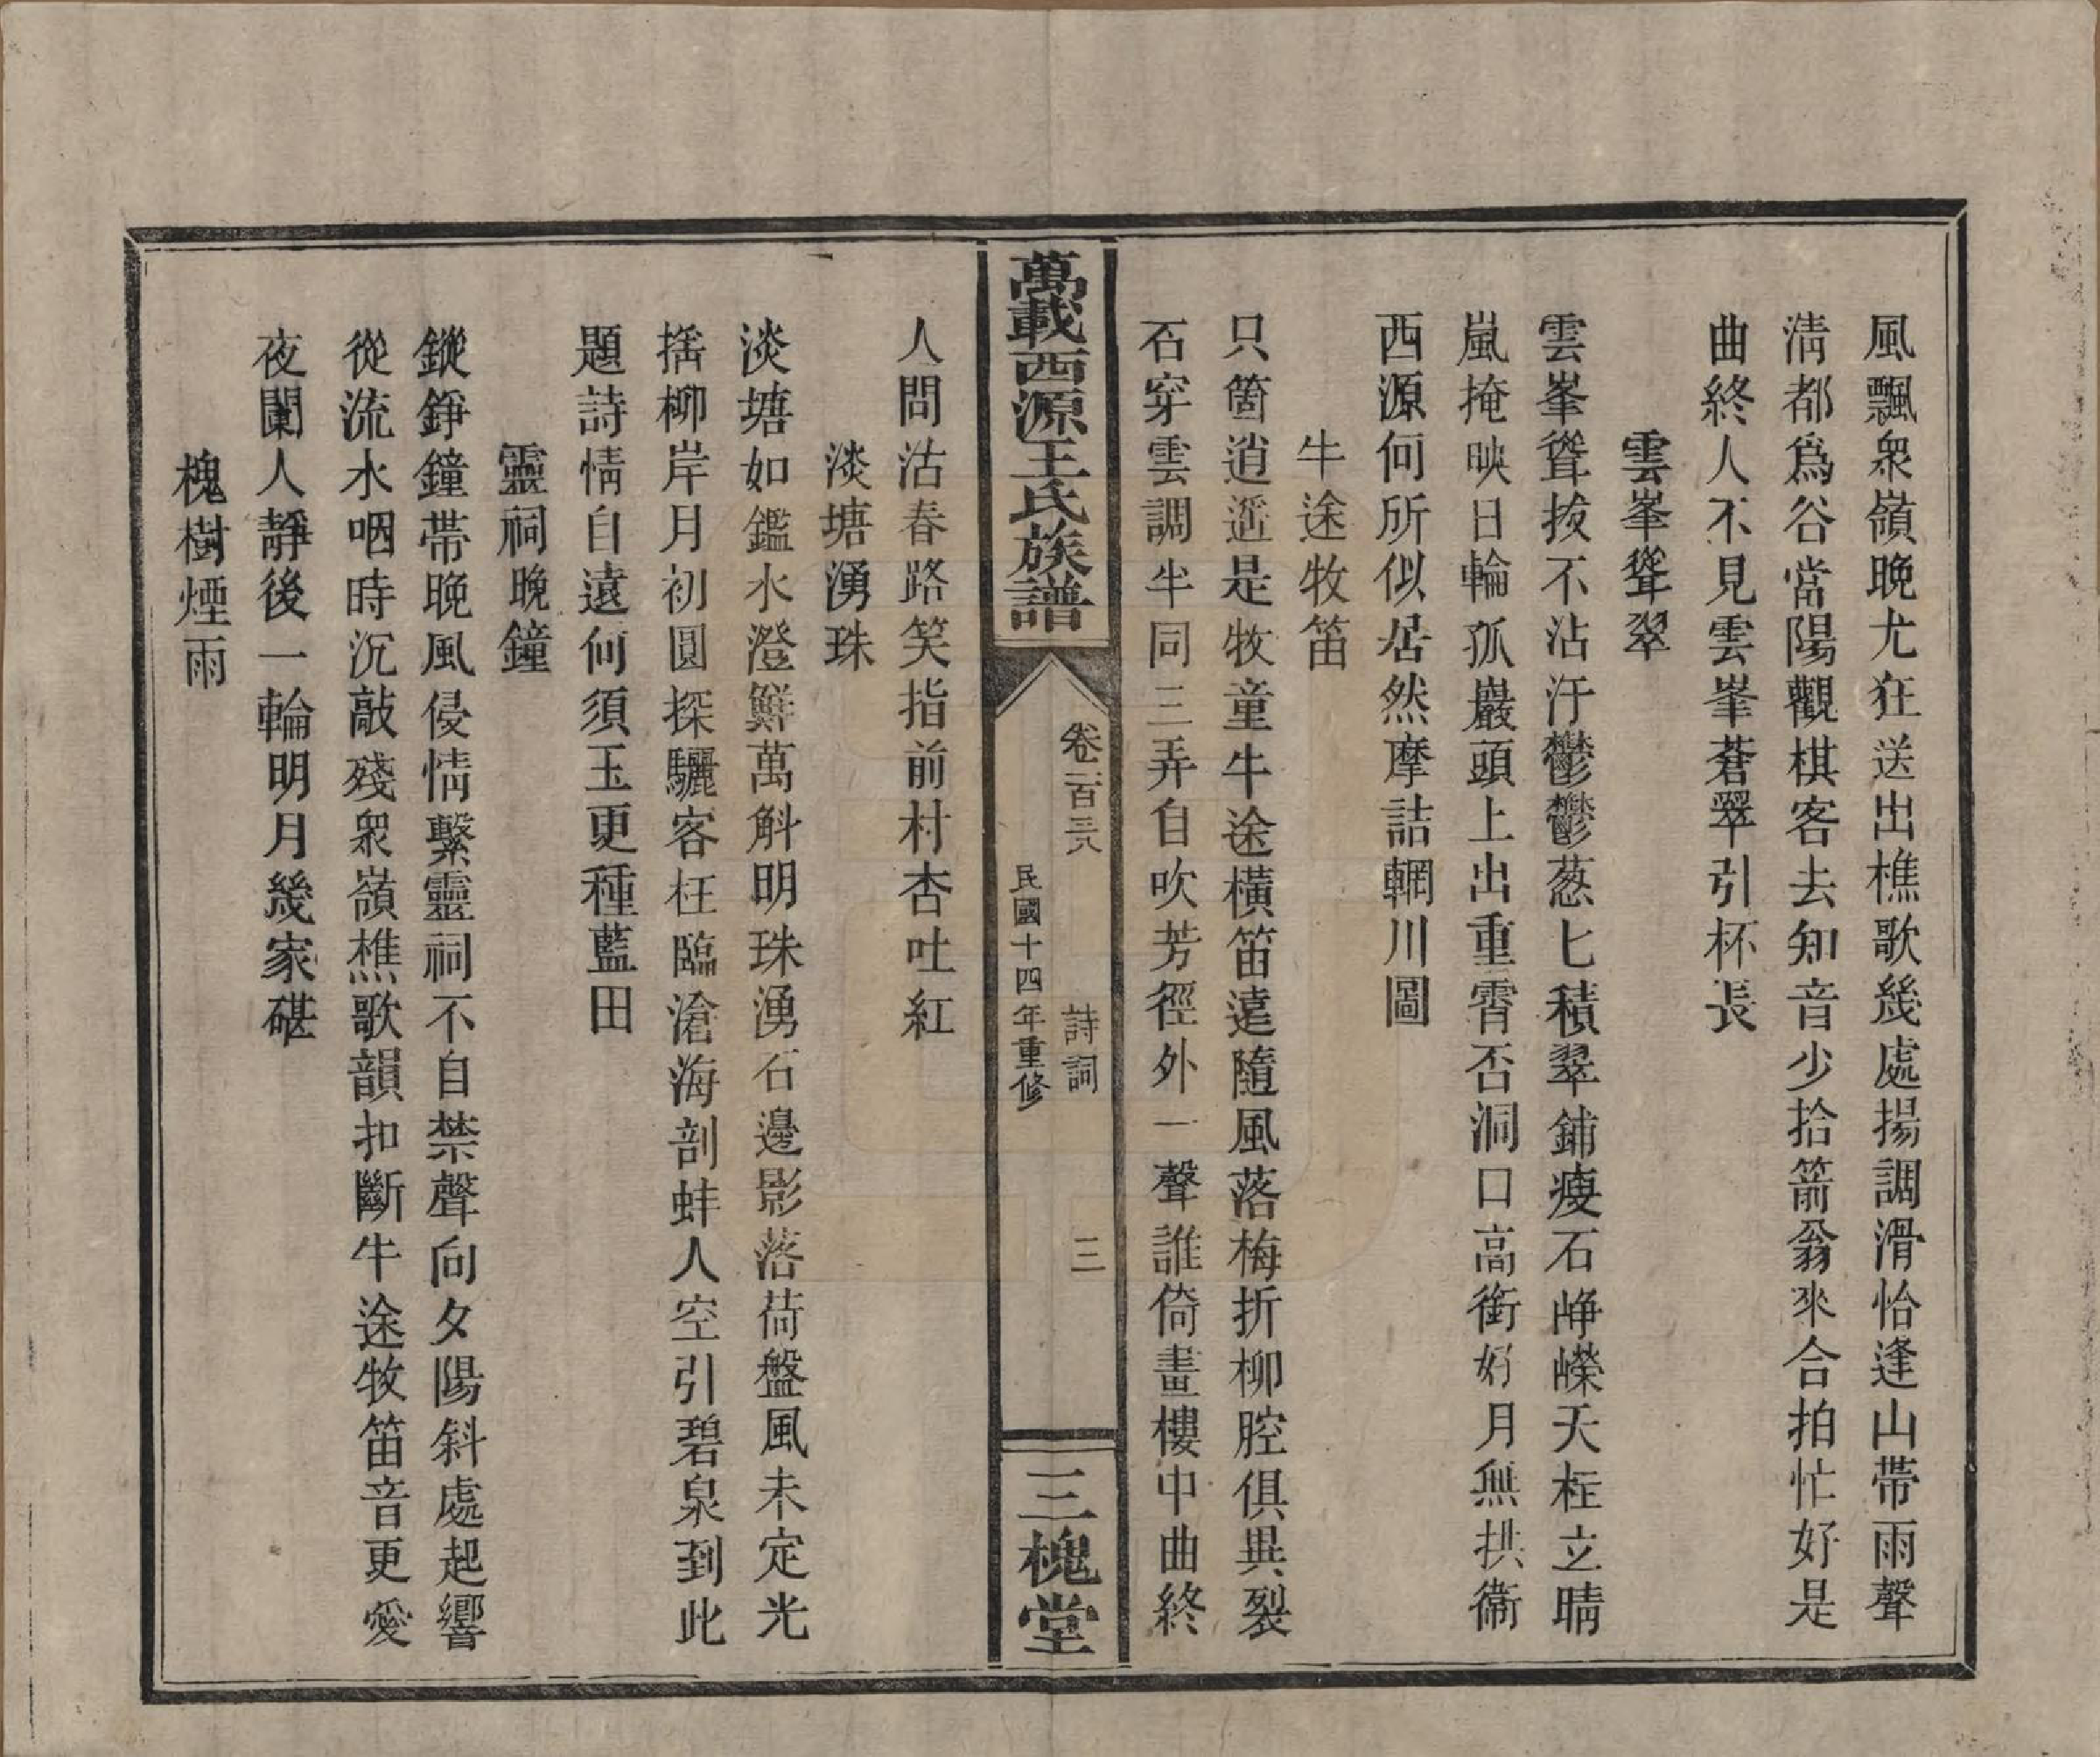 風飄衆嶺晚尤狂送出樵歌幾處揚調滑怡逢山帶雨聲
淸都爲谷當陽觀棋客去知音少拾箭翁來合拍忙好是
曲終人不見雲峯蒼翠引杯長
雲峯聳翠
雲峯聳拔不沾汙鬱鬱葱七積翠鋪瘦石崢嶸天柱立晴
嵐掩映日輪孤巖頭上出重霄否洞口高銜好月無拱衞
西源何所似居然摩詰輞川圖
牛途牧笛
只箇逍遥是牧童牛途橫笛遠隨風落梅折柳腔俱異裂
石穿雲調半同三弄自吹芳徑外一聲誰倚畫樓中曲終
萬載西源王氏族譜
卷二百三八
詩詞
三
民國十四年重修
三槐堂
人問沽春路笑指前村杏吐紅
淡塘湧珠
淡塘如鑑水澄鮮萬斛明珠湧石邊影落荷盤風未定光
搖柳岸月初圓探驪客枉臨滄海剖蚌人空引碧泉到此
題詩情自遠何須玉更種藍田
靈祠晚鐘
鏦錚鐘帶晚風侵情繫靈祠不自禁聲向夕陽斜處起響
從流水咽時沉敲殘衆嶺樵歌韻扣斷牛途牧笛音更愛
夜闌人靜後一輪明月幾家碪
槐樹煙雨